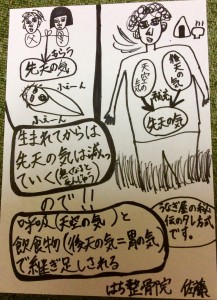 もらう
先天の気
ふぇーん
ふぇーん
生まれてからは
先天の気は減っ
ていく
ので!!
呼吸(天空の気)と
飲食物(後天の気=胃の気)
で継ぎ足しされる
天空の気
後天の気
補充
先天の気
うなぎ屋の秘
伝のタレ方式
です。
はち整骨院 佐藤